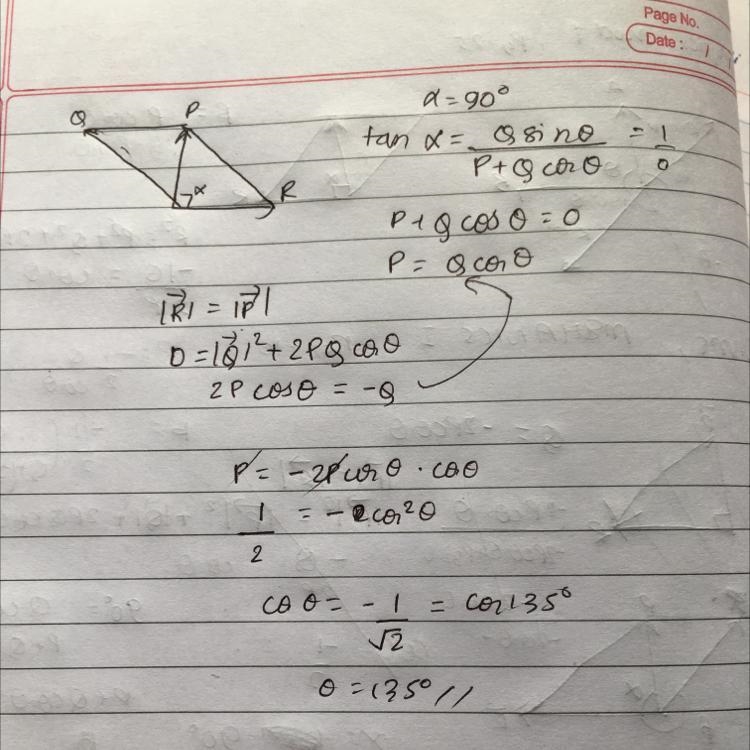 Page No.
Date : 1
Q P
α = 90°
tan α = Q sinθ / P + Q cosθ = 1 / 0
α
R
P + Q cosθ = 0
P = Q cosθ
|R⃗| = |P⃗|
0 = |Q⃗|² + 2PQ cosθ
2P cosθ = -Q
P = -2P cosθ · cosθ
1/2 = -cos²θ
cosθ = -1/√2 = cos135°
θ = 135° //